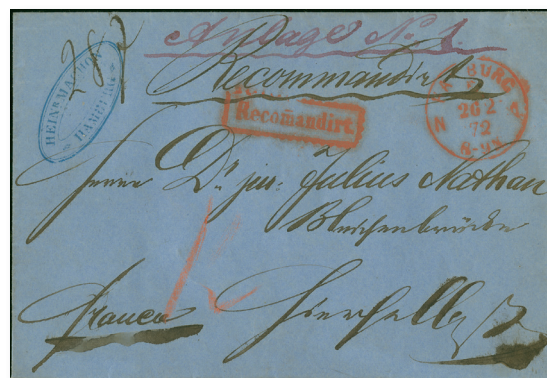 Anlage No. 1.
Recommandirt
Recomandirt
HAMBURG
26 2
72
Herrn Dr. jur: Julius Nathan
Bleichenbrücke
Franco
hierselbst